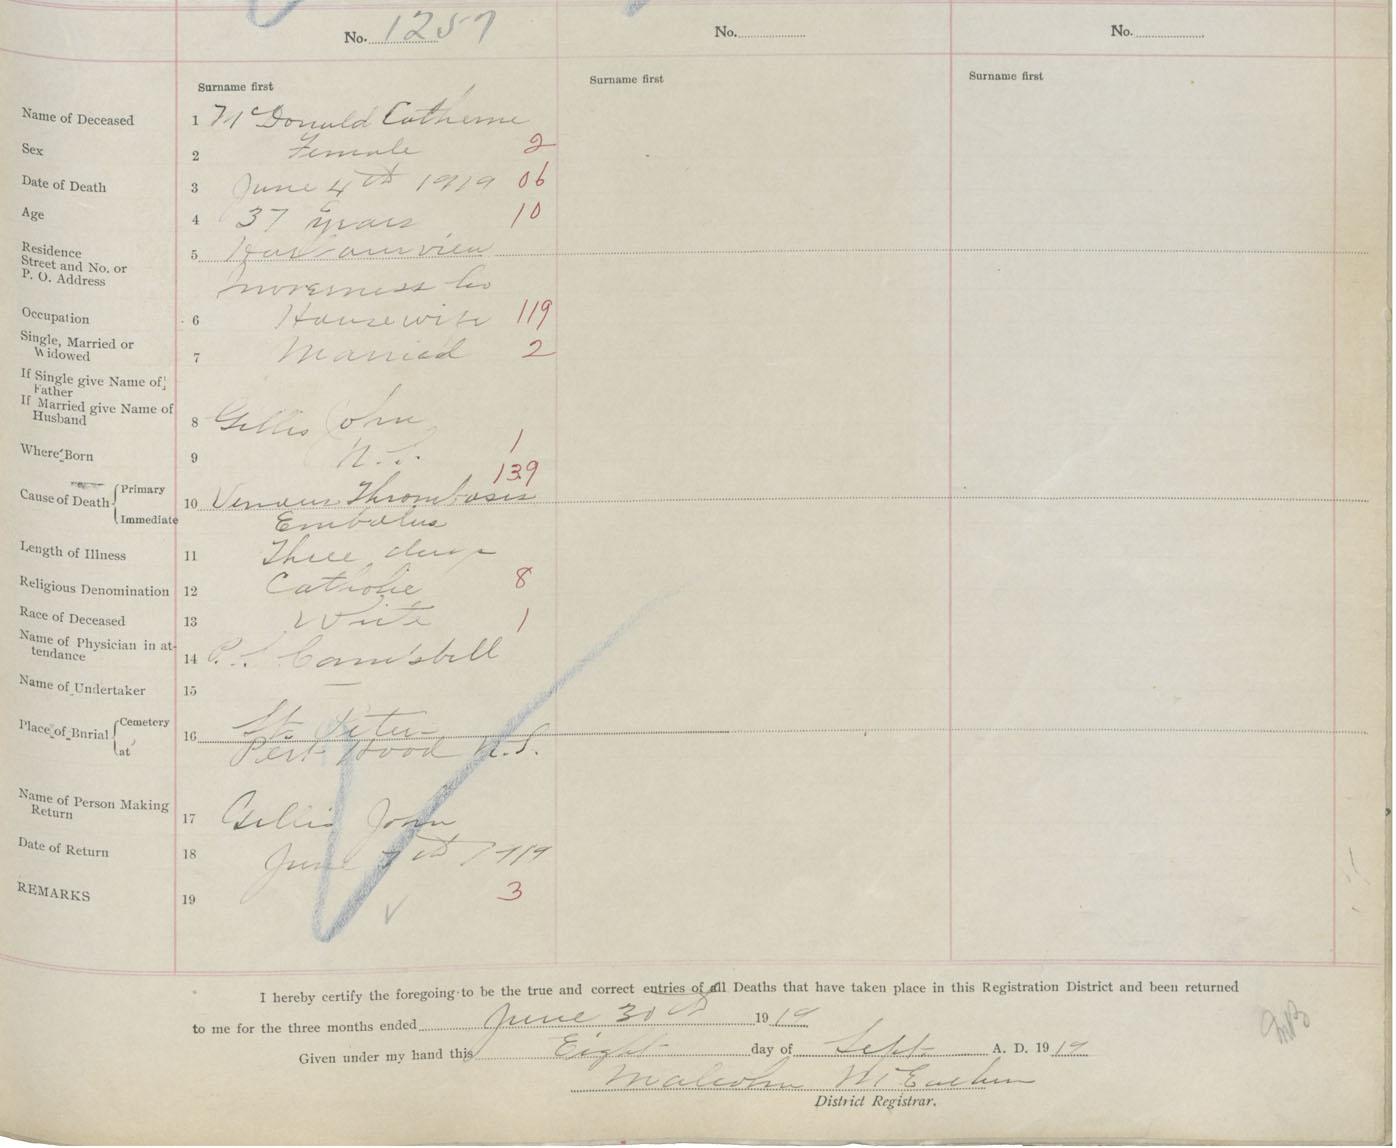 No. 1257
No.
No.
Surname first
Surname first
Surname first
Name of Deceased 1 McDonald Catherine
Sex 2 Female 2
Date of Death 3 June 4th 1919 06
Age 4 37 years 10
Residence
Street and No. or
P. O. Address
5 Harbourview
Inverness Co
Occupation 6 Housewife 119
Single, Married or
Widowed
7 Married 2
If Single give Name of
Father
If Married give Name of
Husband
8 Gillis John
Where Born 9 N.S. 1
139
Cause of Death { Primary
Immediate
10 Venous Thrombosis
Embolus
Length of Illness 11 Three days
Religious Denomination 12 Catholic 8
Race of Deceased 13 White 1
Name of Physician in at-
tendance
14 Campbell
Name of Undertaker 15 —
Place of Burial { Cemetery
at
16 St. Peters
Port Hood N.S.
Name of Person Making
Return
17 Gillis John
Date of Return 18 June 7th 1919
REMARKS 19 3
I hereby certify the foregoing to be the true and correct entries of all Deaths that have taken place in this Registration District and been returned
to me for the three months ended June 30th 1919
Given under my hand this Eight day of Sept. A. D. 1919
Malcolm McEachern
District Registrar.